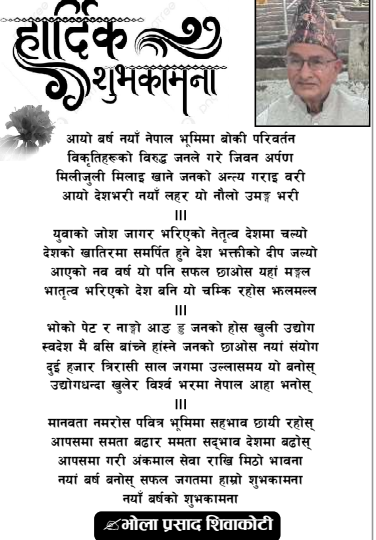 हार्दिक
शुभकामना
आयो बर्ष नयाँ नेपाल भूमिमा बोकी परिवर्तन
विकृतिहरूको विरुद्ध जनले गरे जिवन अर्पण
मिलीजुली मिलाइ खाने जनको अन्त्य गराइ वरी
आयो देशभरी नयाँ लहर यो नौलो उमङ्ग भरी
III
युवाको जोश जागर भरिएको नेतृत्व देशमा चल्यो
देशको खातिरमा समर्पित हुने देश भक्तीको दीप जल्यो
आएको नव वर्ष यो पनि सफल छाओस यहां मङ्गल
भातृत्व भरिएको देश बनि यो चम्कि रहोस झलमल्ल
III
भोको पेट र नाङ्गो आङ हु जनको होस खुली उद्योग
स्वदेश मै बसि बांच्ने हांस्ने जनको छाओस नयां संयोग
दुई हजार त्रिरासी साल जगमा उल्लासमय यो बनोस्
उद्योगधन्दा खुलेर विर्श्व भरमा नेपाल आहा भनोस्
III
मानवता नमरोस पवित्र भूमिमा सहभाव छायी रहोस्
आपसमा समता बढार ममता सद्भाव देशमा बढोस्
आपसमा गरी अंकमाल सेवा राखि मिठो भावना
नयां बर्ष बनोस् सफल जगतमा हाम्रो शुभकामना
नयाँ बर्षको शुभकामना
भोला प्रसाद शिवाकोटी